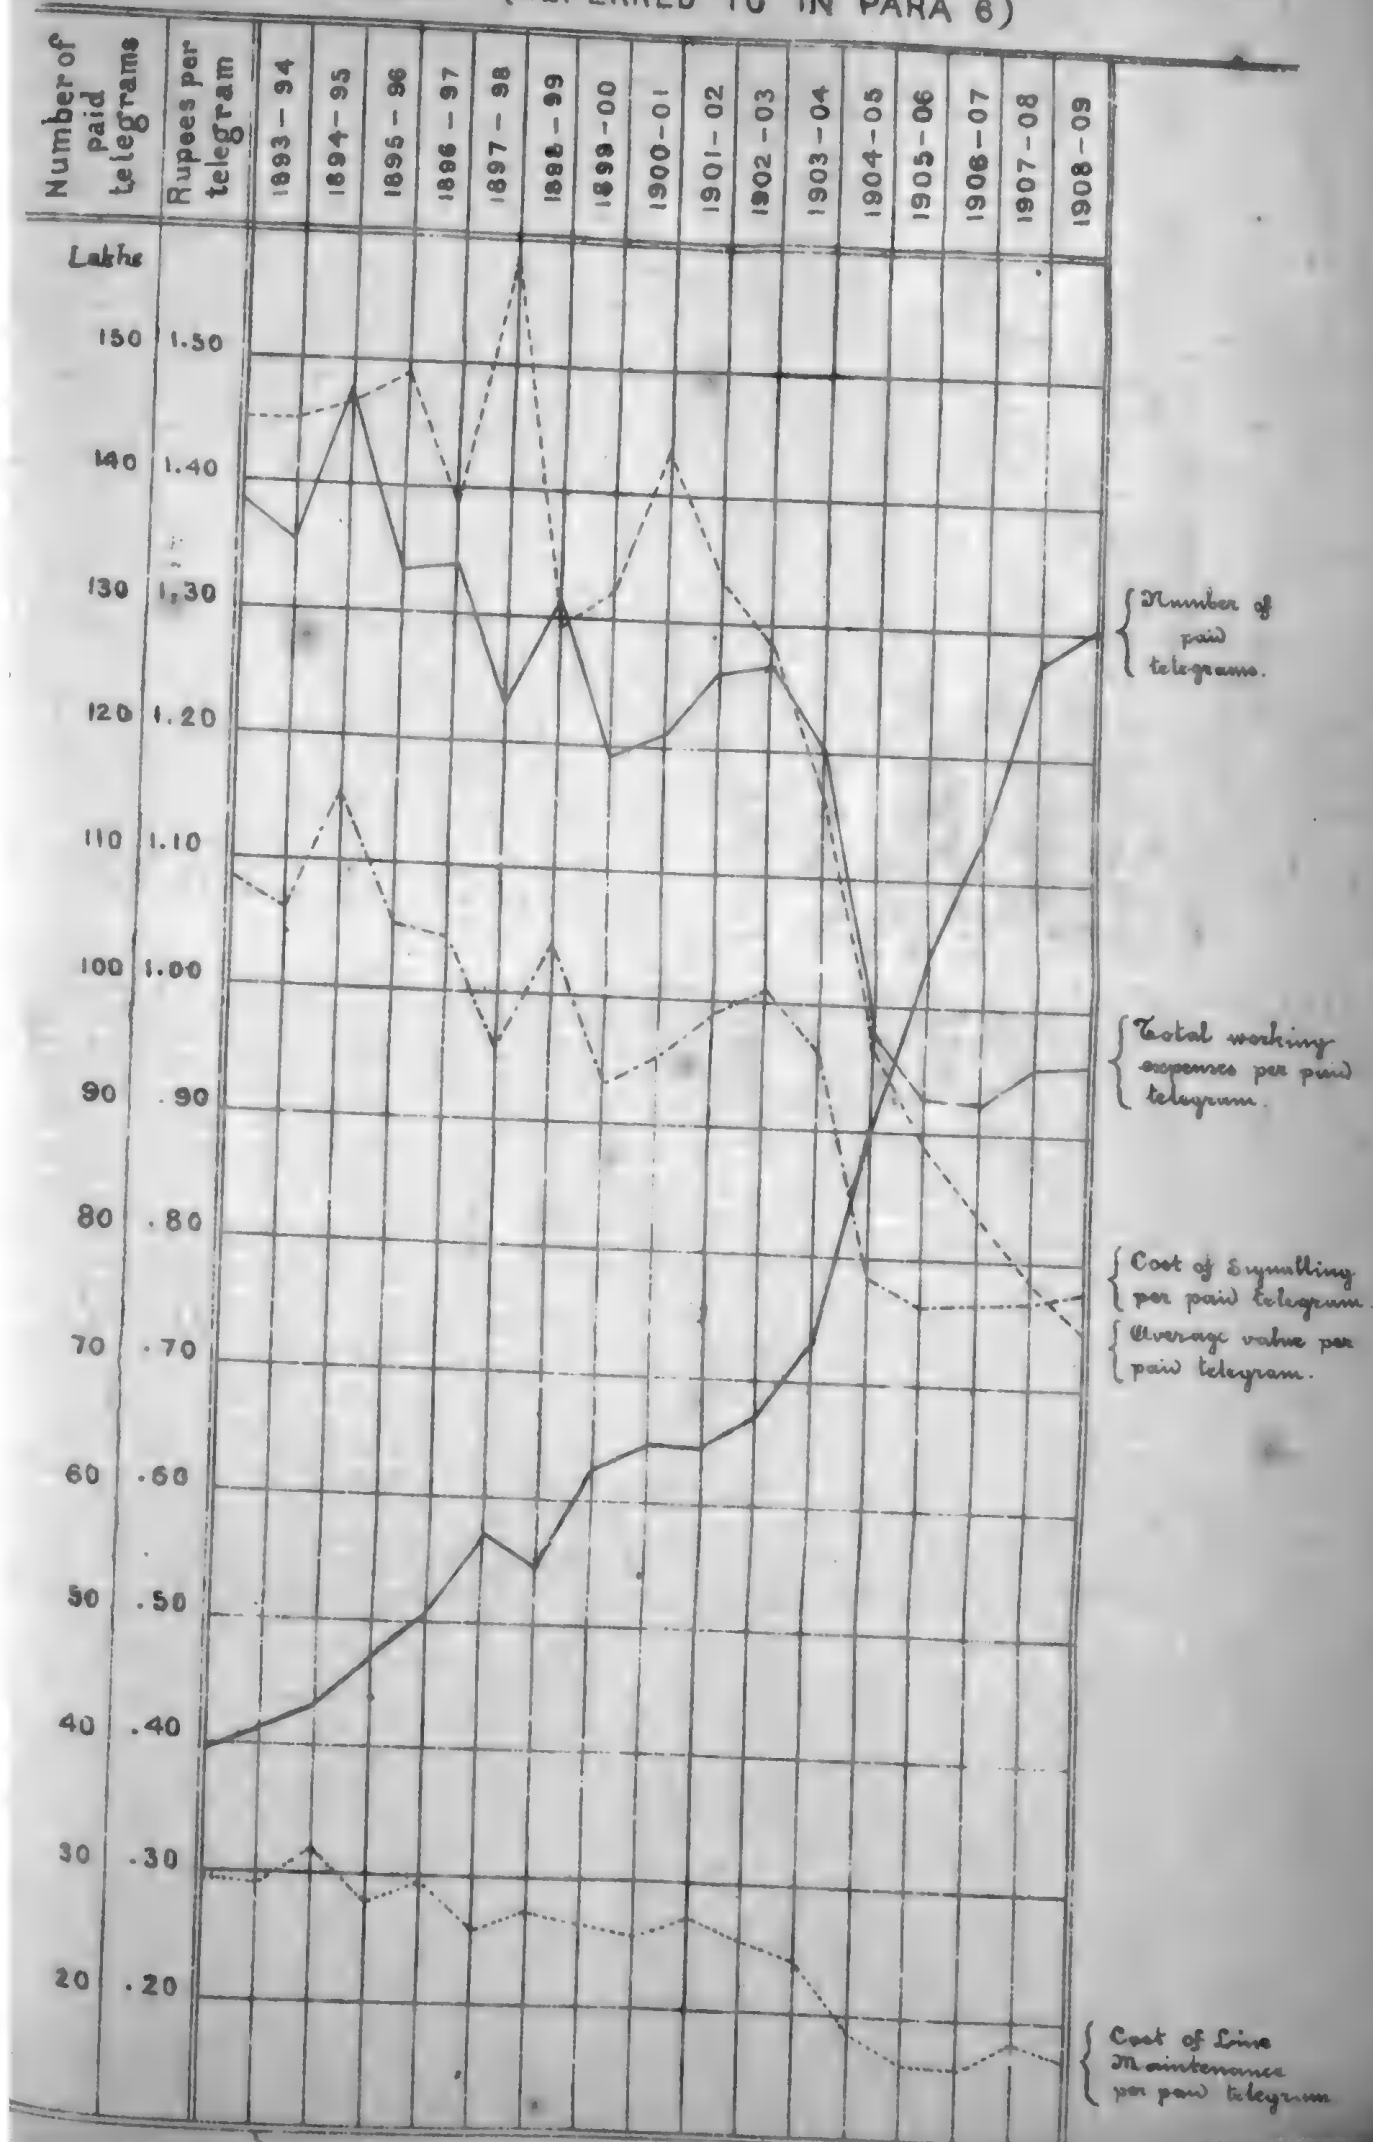 TO IN PARA 6)
Number of
paid
telegrams
Rupees per
telegram
1893-94
1894-95
1895-96
1896-97
1897-98
1898-99
1899-00
1900-01
1901-02
1902-03
1903-04
1904-05
1905-06
1906-07
1907-08
1908-09
Lakhs
150 1.50
140 1.40
130 1,30
120 1.20
110 1.10
100 1.00
90 .90
80 .80
70 .70
60 .60
50 .50
40 .40
30 .30
20 .20
Number of
paid
telegrams.
Total working
expenses per paid
telegram.
Cost of Signalling
per paid telegram.
Average value per
paid telegram.
Cost of Line
Maintenance
per paid telegram